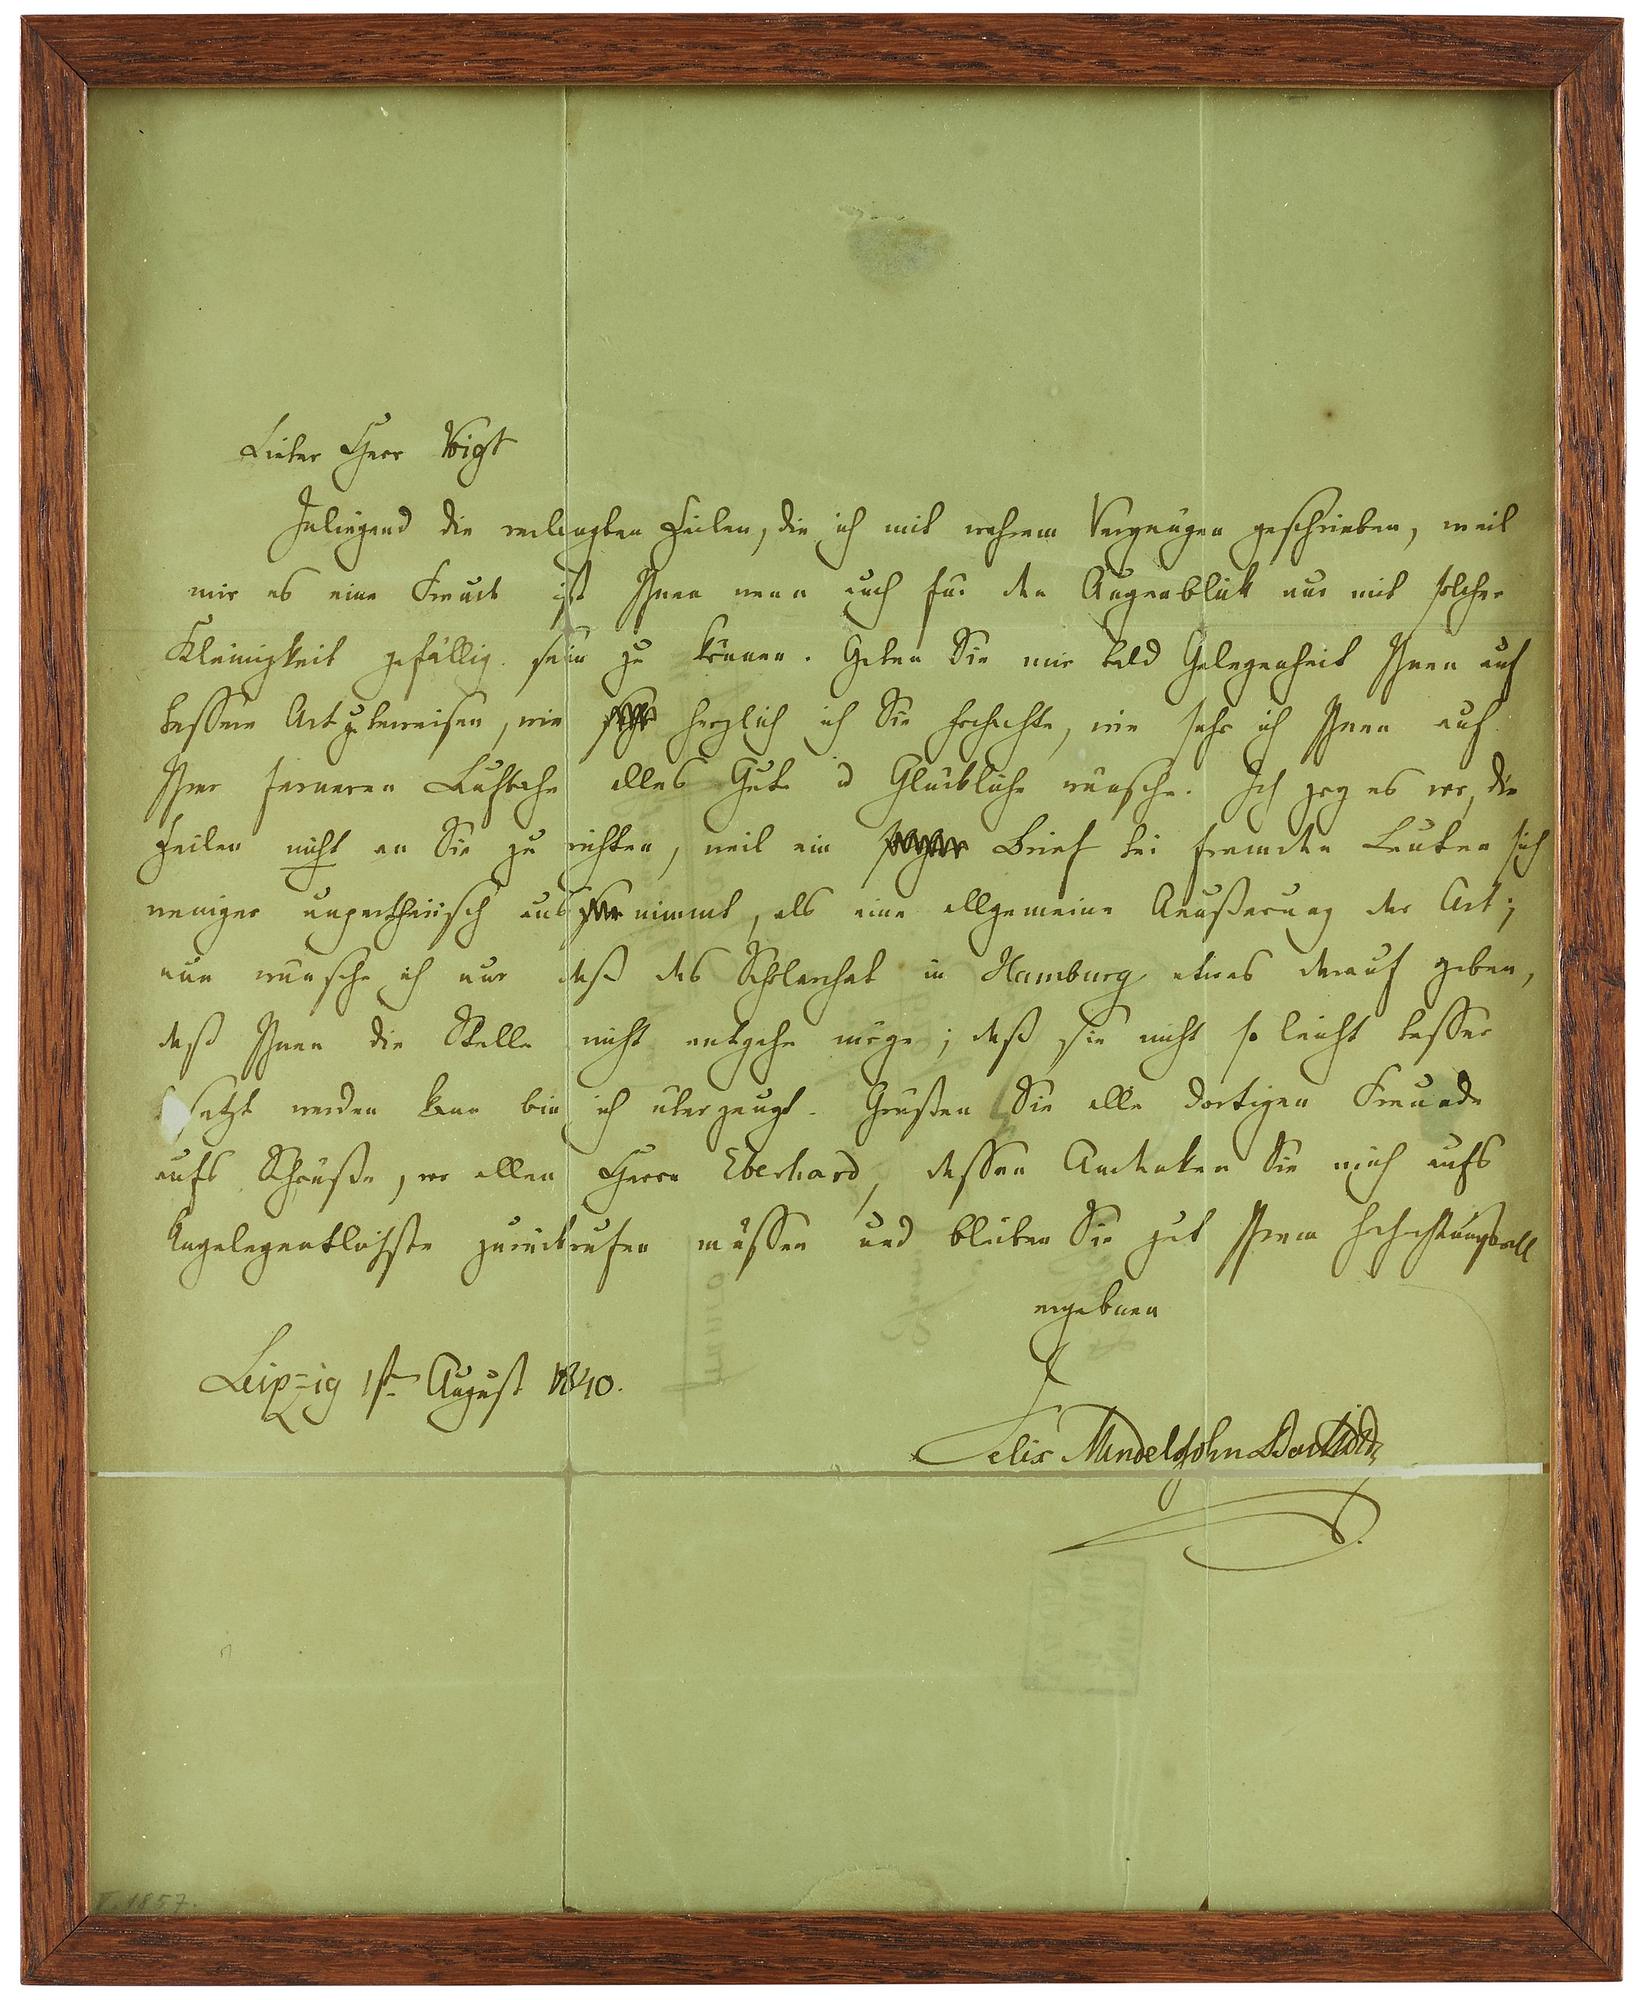 Lieber Herr Voigt
Inliegend die verlangten Zeilen, die ich mit wahrem Vergnügen geschrieben, weil
mir es eine Freude ist Ihnen wenn auch für den Augenblick nur mit solcher
Kleinigkeit gefällig sein zu können. Geben Sie mir bald Gelegenheit Ihnen auf
bessere Art zu beweisen, wie herzlich ich Sie hochachte, wie sehr ich Ihnen auf
Ihrer ferneren Laufbahn alles Gute u Glückliche wünsche. Ich zog es vor, die
Zeilen nicht an Sie zu richten, weil ein Brief bei fremden Leuten sich
weniger unpartheiisch ausnimmt, als eine allgemeine Aeußerung der Art;
nun wünsche ich nur daß das Scholarchat in Hamburg etwas darauf geben,
daß Ihnen die Stelle nicht entgehn möge; daß sie nicht so leicht besser
setzt werden kann bin ich überzeugt. Grüßen Sie alle dortigen Freunde
aufs Schönste, vor allen Herrn Eberhard, dessen Andenken Sie mich aufs
Angelegentlichste zurückrufen müssen und bleiben Sie gut Ihrem hochachtungsvoll
ergebnen
Leipzig 1st August 1840.
Felix Mendelssohn Bartholdy
1857.